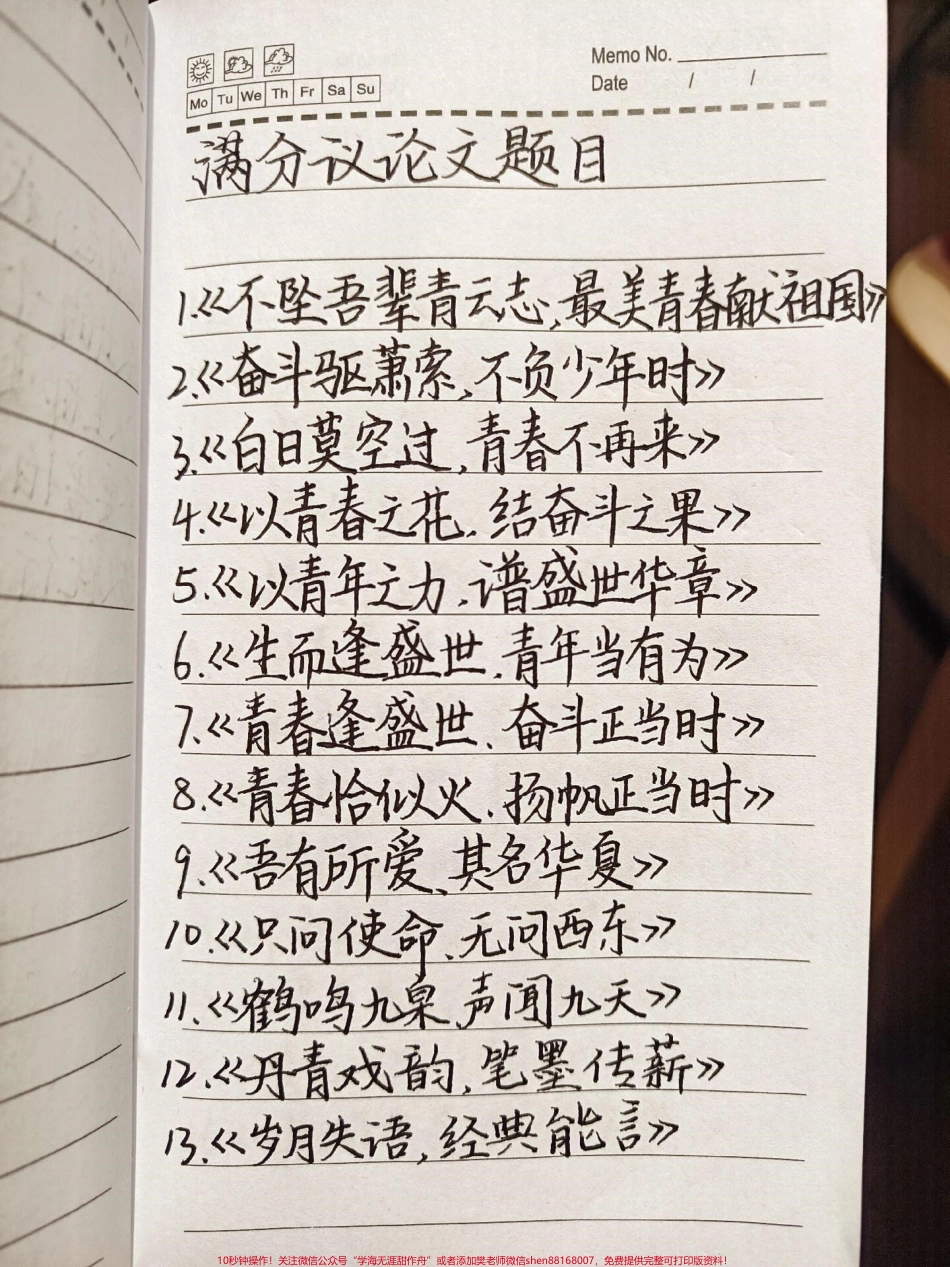 Memo No.
Mo Tu We Th Fr Sa Su
Date / /
满分议论文题目
1.《不坠吾辈青云志,最美青春献祖国》
2.《奋斗驱萧索,不负少年时》
3.《白日莫空过,青春不再来》
4.《以青春之花,结奋斗之果》
5.《以青年之力,谱盛世华章》
6.《生而逢盛世,青年当有为》
7.《青春逢盛世,奋斗正当时》
8.《青春恰似火,扬帆正当时》
9.《吾有所爱,其名华夏》
10.《只问使命,无问西东》
11.《鹤鸣九泉,声闻九天》
12.《丹青戏韵,笔墨传薪》
13.《岁月失语,经典能言》
10秒钟操作！关注微信公众号“学海无涯甜作舟”或者添加樊老师微信shen88168007，免费提供完整可打印版资料！